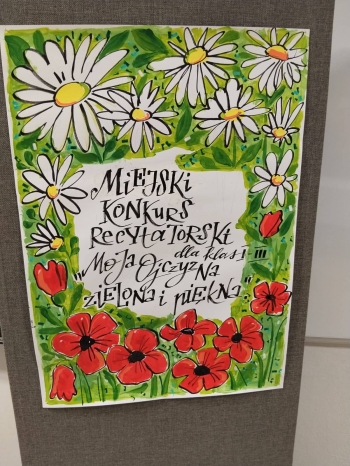 MiEJSKi
KONKURS
RECYtATORSKi
dla klas I-III
„MOJA OjCZYZNA
ZIELONA i PiĘKNA"